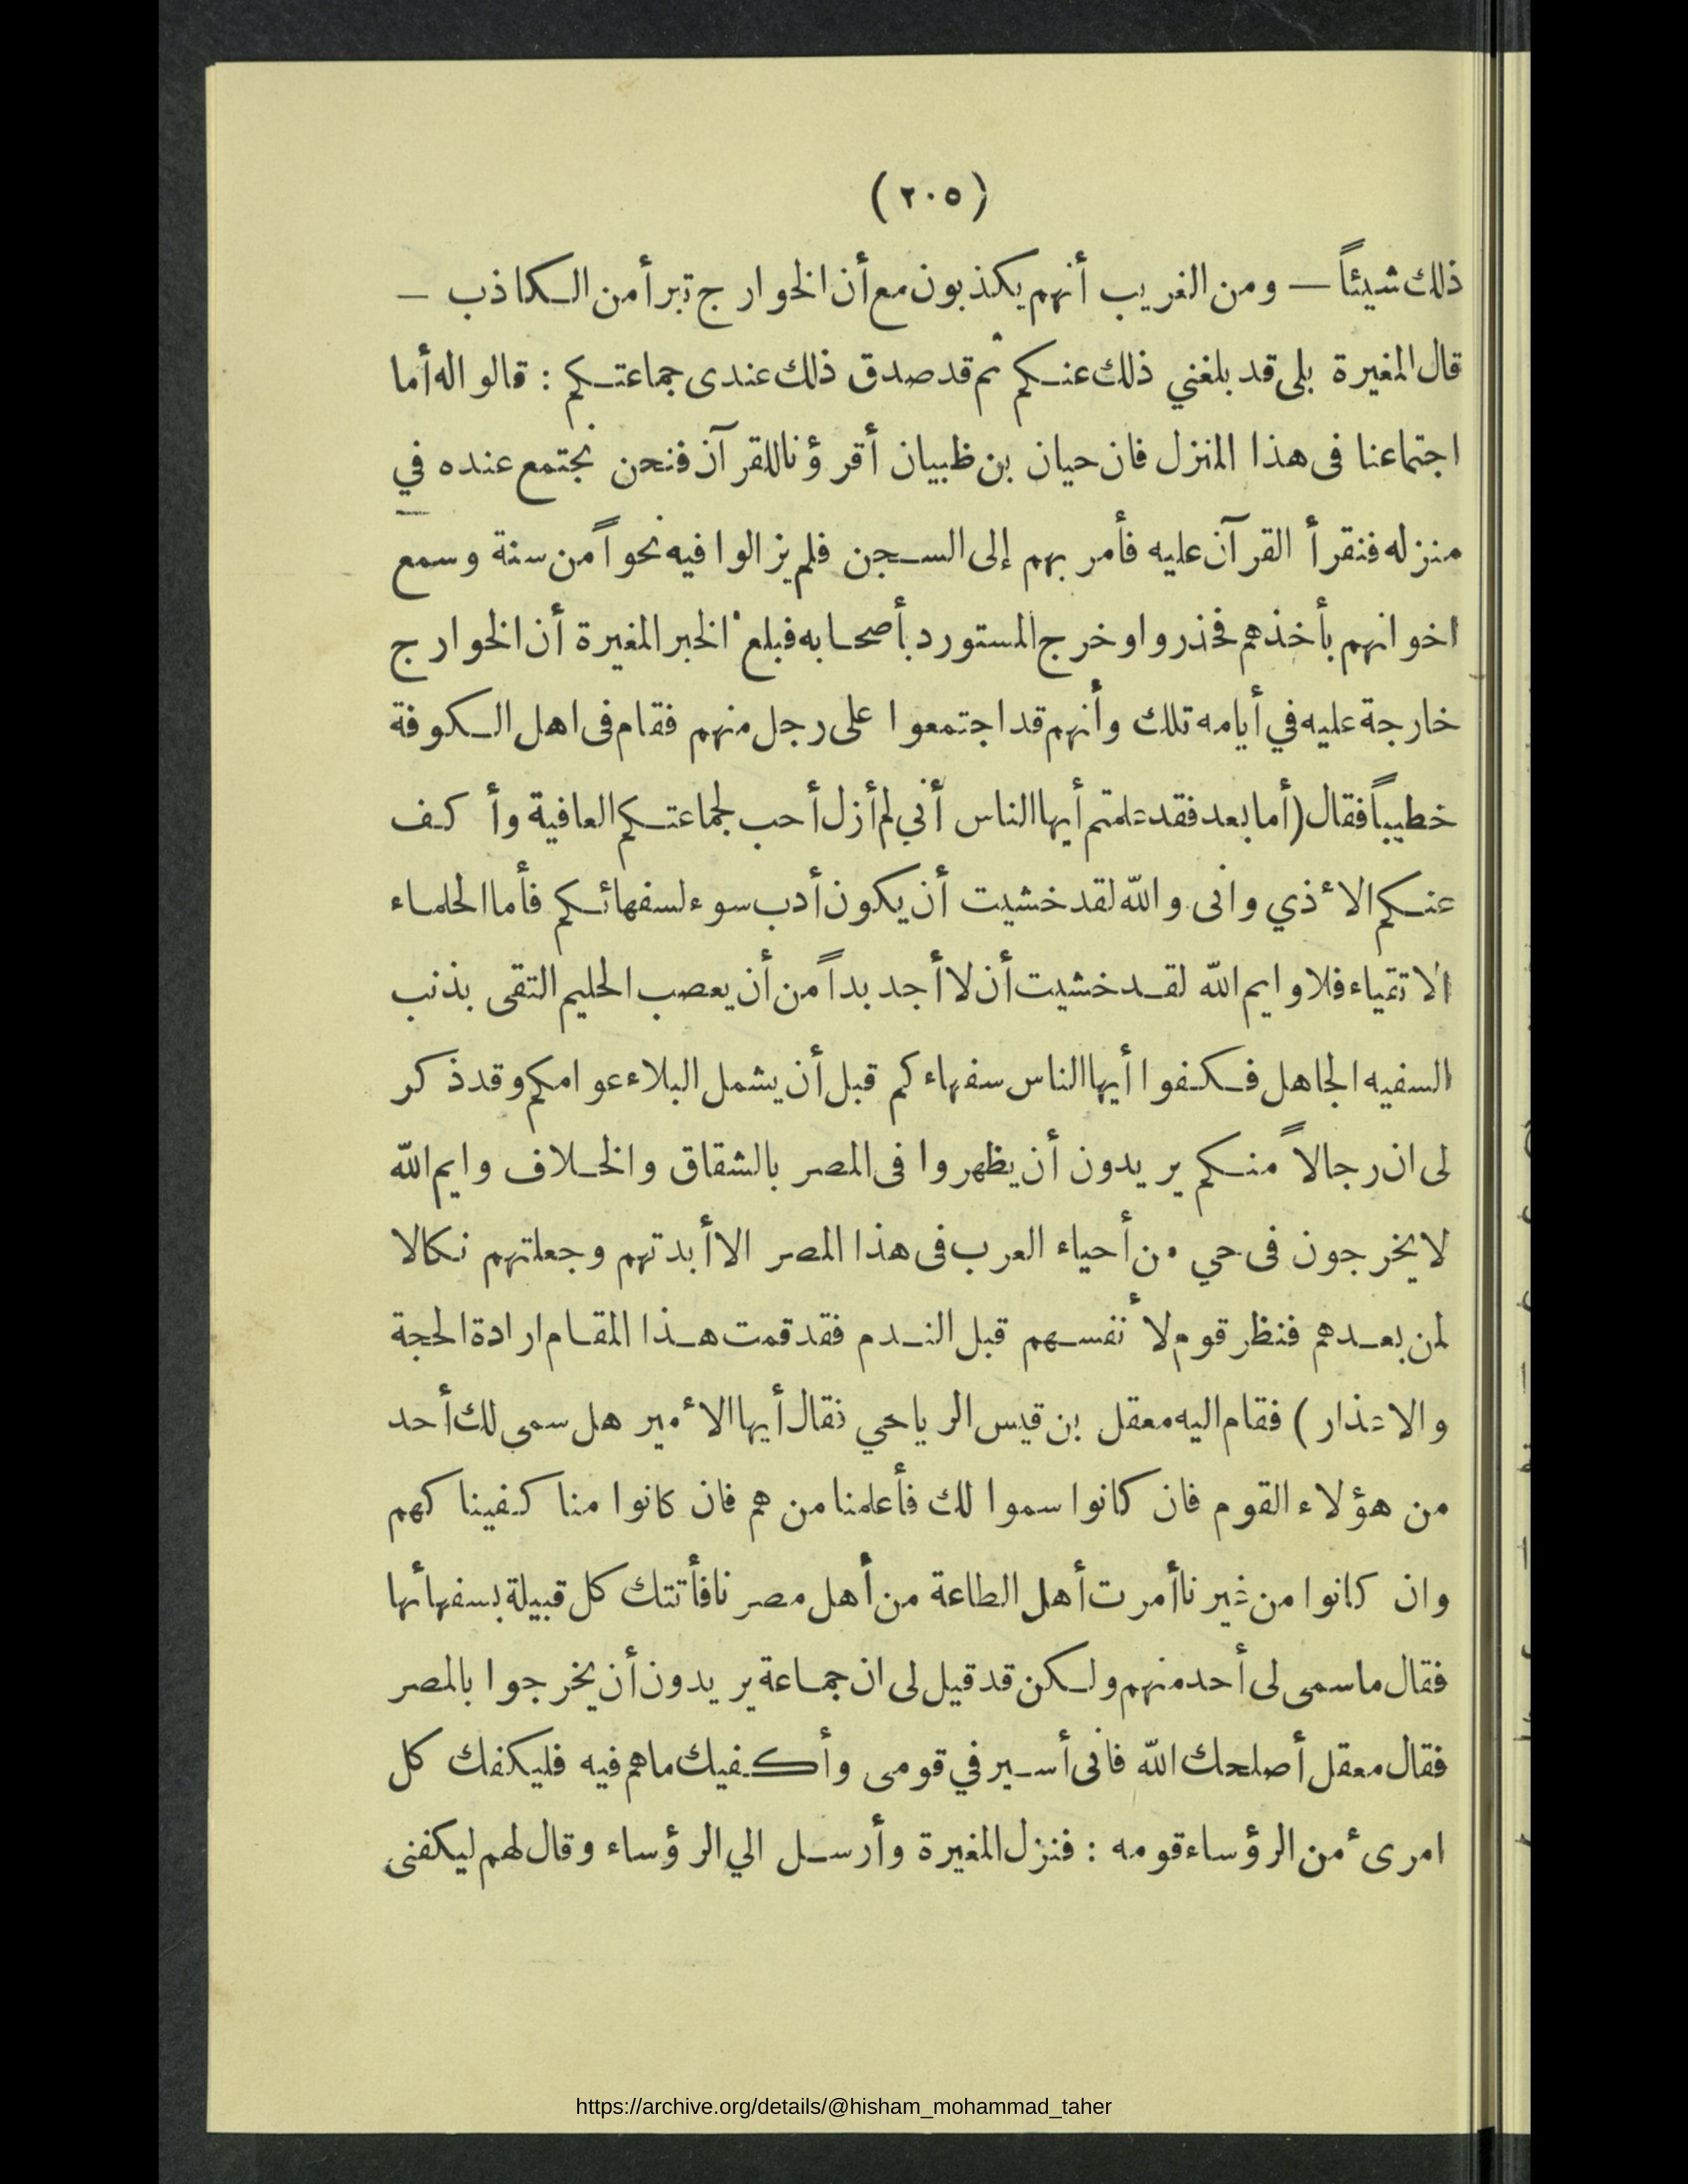 (٢٠٥)
ذلك شيئاً — ومن الغريب أنهم يكذبون مع أن الخوارج تبرأ من الكاذب —
قال المغيرة بلى قد بلغني ذلك عنكم ثم قد صدق ذلك عندى جماعتكم : قالوا له أما
اجتماعنا فى هذا المنزل فان حيان بن ظبيان أقرؤنا للقرآن فنحن نجتمع عنده في
منزله فنقرأ القرآن عليه فأمر بهم إلى السجن فلم يزالوا فيه نحواً من سنة وسمع
اخوانهم بأخذهم فحذروا وخرج المستورد بأصحابه فبلع الخبر المغيرة أن الخوارج
خارجة عليه في أيامه تلك وأنهم قد اجتمعوا على رجل منهم فقام فى اهل الكوفة
خطيباً فقال (أما بعد فقد علمتم أيها الناس أني لم أزل أحب لجماعتكم العافية وأكف
عنكم الأذي وانى والله لقد خشيت أن يكون أدب سوء لسفهائكم فأما الحلماء
الاتقياء فلا وايم الله لقد خشيت أن لا أجد بداً من أن يعصب الحليم التقى بذنب
السفيه الجاهل فكفوا أيها الناس سفهاءكم قبل أن يشمل البلاء عوامكم وقد ذكر
لى ان رجالاً منكم يريدون أن يظهروا فى المصر بالشقاق والخلاف وايم الله
لا يخرجون فى حي من أحياء العرب فى هذا المصر الا أبدتهم وجعلتهم نكالا
لمن بعدهم فنظر قوم لأنفسهم قبل الندم فقد قمت هذا المقام ارادة الحجة
والاعذار) فقام اليه معقل بن قيس الرياحي فقال أيها الأمير هل سمى لك أحد
من هؤلاء القوم فان كانوا سموا لك فأعلمنا من هم فان كانوا منا كفيناكهم
وان كانوا من غيرنا أمرت أهل الطاعة من أهل مصرنا فأتتك كل قبيلة بسفهائها
فقال ما سمى لى أحد منهم ولكن قد قيل لى ان جماعة يريدون أن يخرجوا بالمصر
فقال معقل أصلحك الله فانى أسير في قومى وأكفيك ما هم فيه فليكفك كل
امرىء من الرؤساء قومه : فنزل المغيرة وأرسل الي الرؤساء وقال لهم ليكفنى
https://archive.org/details/@hisham_mohammad_taher